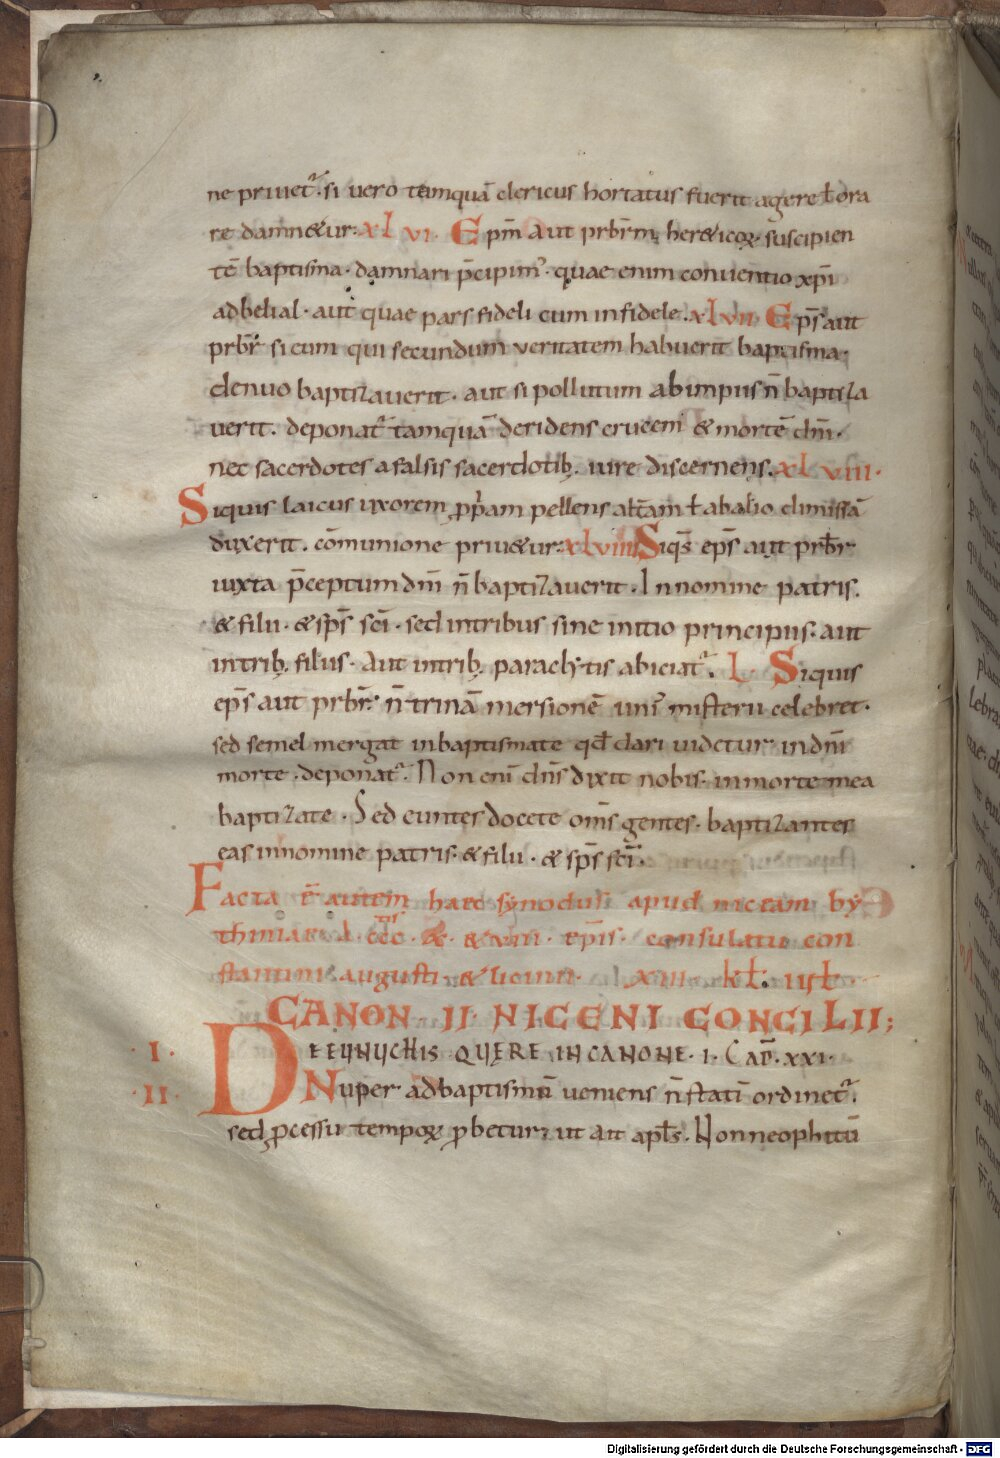 ne priuet᷑. si uero tamquā clericus hortatus fuerit agere ł ora
re damn&ur. xl vi. Epm̄ aut prbr̄m, her&icoꝝ suscipien
tē baptisma. damnari p̄cipim᾽. quae enim conuentio xp̄i
adbelial. aut quae pars fideli cum infidele. xlvii Ep̄s aut
prbr̄ si eum qui secundum ueritatem habuerit baptisma.
denuo baptizauerit. aut si pollutum abimpiis n̄ baptiza
uerit. deponat᷑ tamquā deridens crucem & mortē dn̄i.
nec sacerdotes afalsis sacerdotib; iure discernens. xl viii.
Siquis laicus uxorem, ꝓp̄am pellens alt̄am ł abalio dimissā
duxerit. cōmunione priu&ur. xlviiii Siqs̄ ep̄s aut prbr̄
iuxta p̄ceptum dn̄i n̄ baptizauerit. In nomine patris.
& filii. & sp̄s sc̄i. sed intribus sine initio principiis. aut
intrib; filiis. Aut intrib; paraclytis abiciat᷑. L. Siquis
ep̄s aut prbr̄. n̄ trinā mersionē uni᾽ misterii celebret.
sed semel mergat inbaptismate qd̄ dari uidetur indn̄i
morte. deponat᷑. Non eni dn̄s dixit nobis. inmorte mea
baptizate. Sed euntes docete om̄s gentes. baptizantes
eas innomine patris. & filii. & sp̄s sc̄i.
Facta ē autem haec synodus apud niceam by
thiniae. a. ccc. &. &viii. ep̄is. consulatu con
stantini augusti & licinii. XIII. kł. iuł.
CANON II NICENI CONCILII;
.I. DE EUNUCHIS QUERE IN CANONE. I. CAP̄. XXI.
.II. Nuper adbaptismū ueniens n̄ statī ordinet᷑.
sed ꝓcessu tempoꝝ ꝓbetur, ut ait apłs. Non neophitū
Digitalisierung gefördert durch die Deutsche Forschungsgemeinschaft - DFG